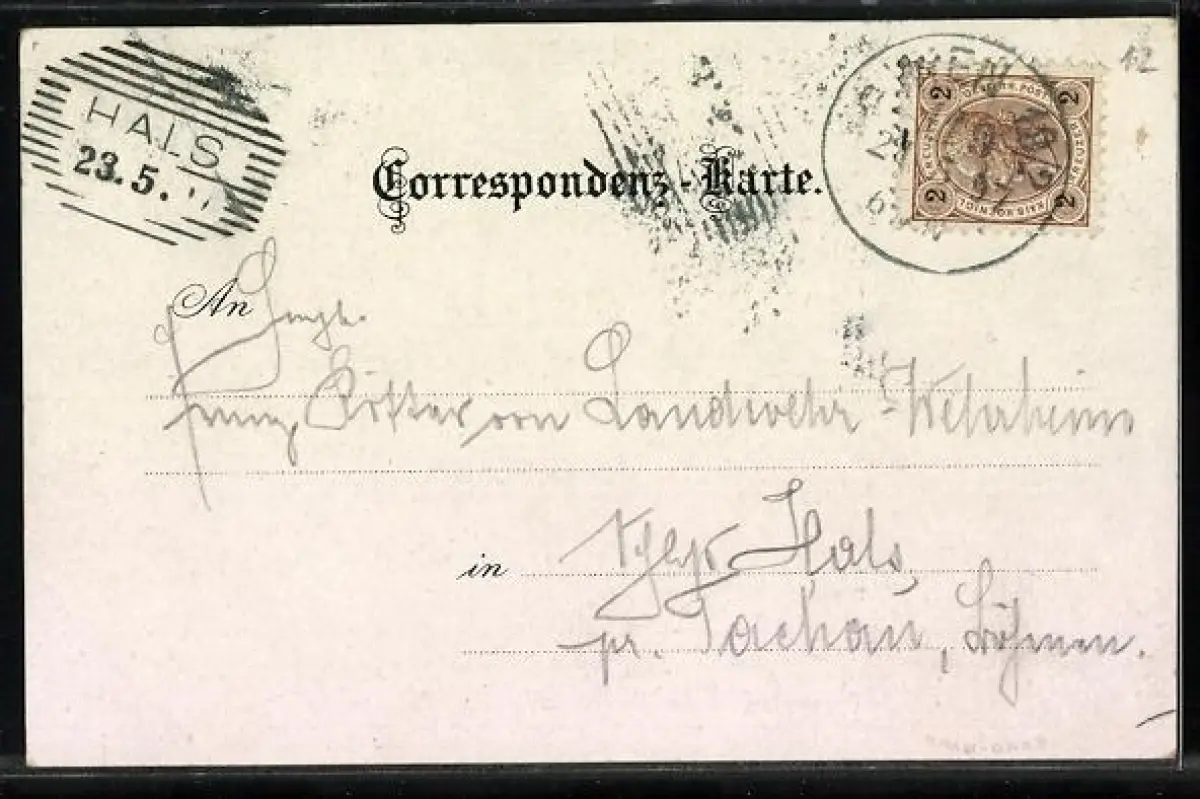 HALS
23.5.
12
WIEN
2
2
2
2
Correspondenz-Karte.
An
Ritter von Landwehr-Wehrheim
in Schloß Hals,
pr. Tachau, Böhmen.